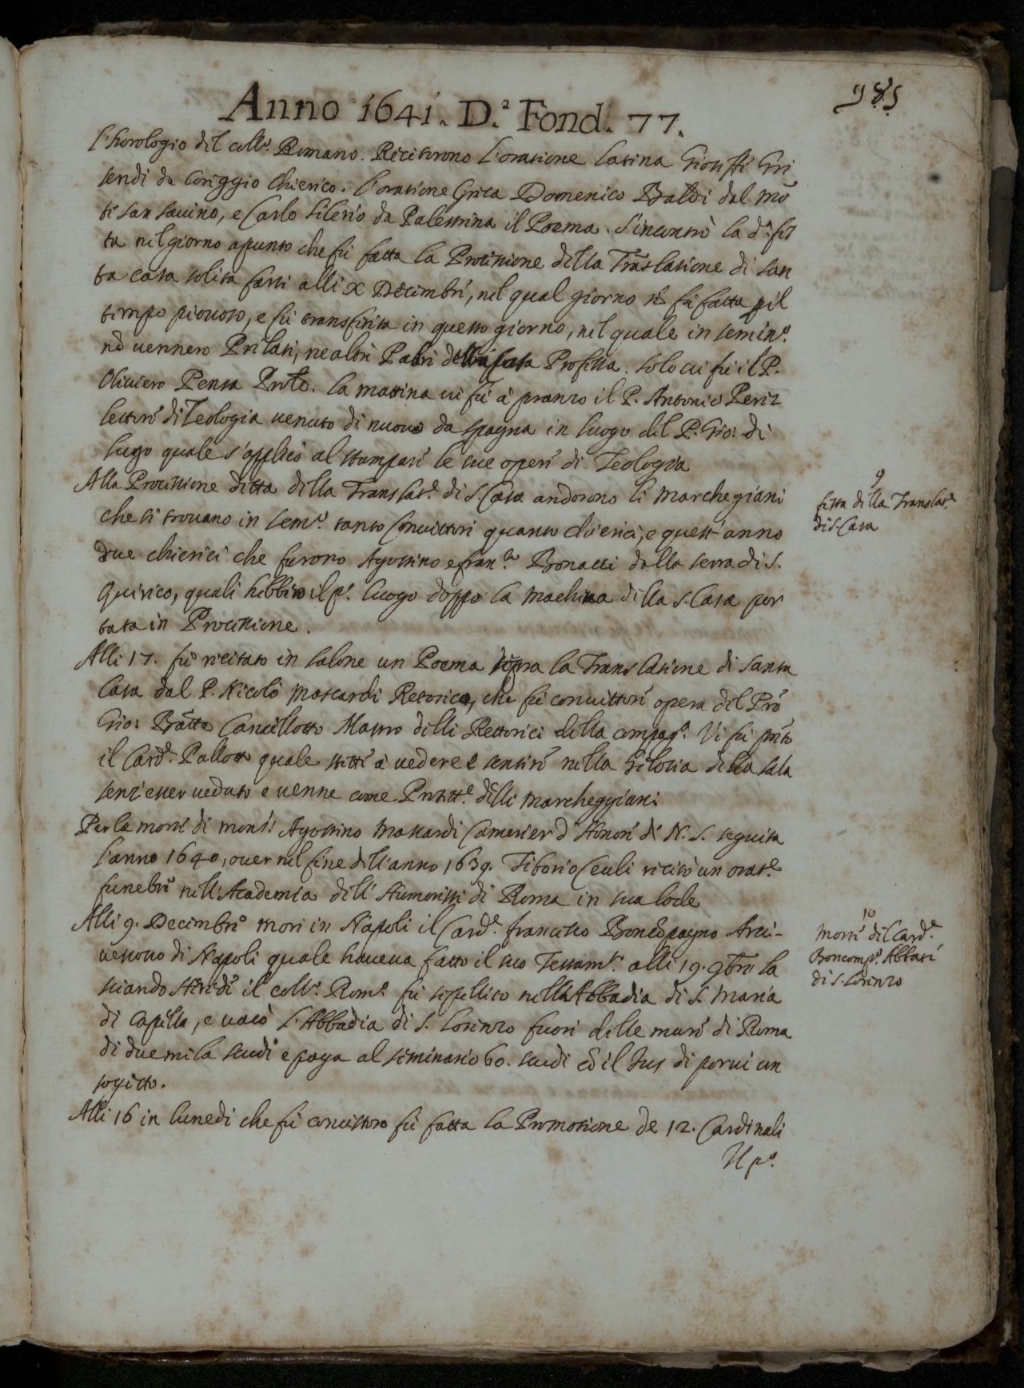 985
Anno 1641. D.ª Fond. 77.
l'horologio del coll.º Romano. Recitorono l'oratione latina Gioseffi Gri
sendi da Coreggio Chierico. l'oratione Greca Domenico Baldi dal Mõ
te san savino, e Carlo Silerio da Palestrina il Poema. S'incontrò la d.ª fes
ta nel giorno apunto che fù fatta la Processione della Traslatione di san
ta casa solita farsi alli X Decembre, nel qual giorno nõ fù fatta p il
tempo piovoso, e fù transferita in questo giorno, nel quale in semin.º
nõ vennero Prelati, ne altri Padri della Professa. solo vi fù il P.
Oliviero Pensa la mattina vi fù à pranzo il P. Antonio Perez
lettore di Teologia venuto di nuovo da spagna in luogo del P. Gio: di
lugo quale s'applicò al stampare le sue opere di Teologia
Alla Processione detta della Translat.e di S. Casa andorono li Marchegiani
che si trovano in sem.º tanto Convittori quanto chierici, e quest'anno
due chierici che furono Agostino e fran.co Bonacci dalla serra di S.
Quirico, quali hebbero il p.º luogo doppo la Machina della S. Casa por
tata in Processione.
Alli 17. fù recitato in salone un Poema sopra la Translatione di santa
Casa dal P. Nicolò Mascardi Retorico, che fù convittore opera del Prõ
Gio: Batta Cancellotto Mastro delli Rettorici della compag.ª Vi fù
il Card. Pallotto quale stette à vedere e sentire nella Gelosia della sala
senz'esser veduto e venne come Protett.e delli Marcheggiani
Per la morte di mons.r Agostino Mascardi Camerier d'Honore di N. S. seguita
l'anno 1640, over nel fine dell'anno 1639. Tiborio Ceuli recitò un orat.e
funebre nell'Academia dell'Humoristi di Roma in sua lode
Alli 9. Decembre morì in Napoli il Card.e francesco Boncõpagno Arci-
vescovo di Napoli quale haveva fatto il suo Testam.to alli 19. 9bre la
sciando Herede il coll.º Rom.º fù sepellito nella Abbadia di S. Maria
di Capella, e vacò l'Abbadia di S. Lorenzo fuori delle mura di Roma
di due mila scudi e paga al seminario 60. scudi ed il Jus di porvi un
sogetto.
Alli 16 in lunedi che fù fù fatta la Promotione de 12. Cardinali
Il p.º
9
festa della Translat.e
di S. Casa
10
Morte del Card.e
Boncomp.º Abbate
di S. Lorenzo